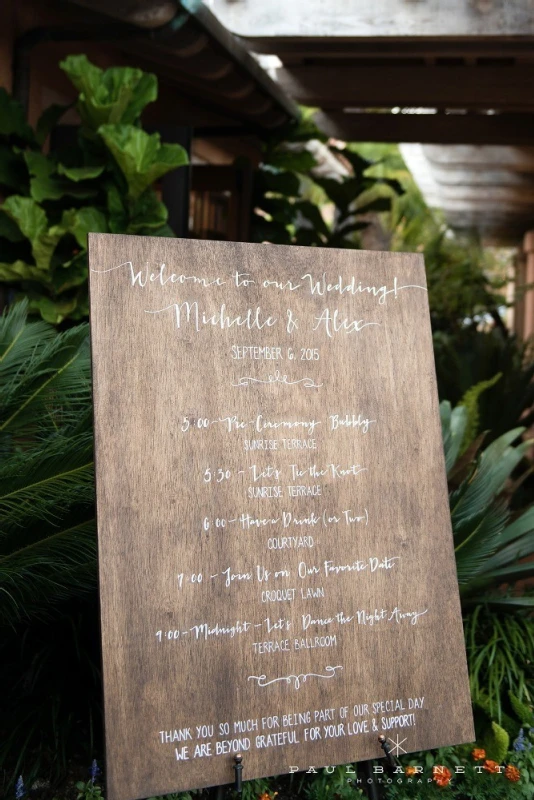 Welcome to our Wedding!
Michelle & Alex
SEPTEMBER 6, 2015
5:00 - Pre-Ceremony Bubbly
SUNRISE TERRACE
5:30 - Let's Tie the Knot
SUNRISE TERRACE
6:00 - Have a Drink (or Two)
COURTYARD
7:00 - Join Us on Our Favorite Date
CROQUET LAWN
9:00 - Midnight - Let's Dance the Night Away
TERRACE BALLROOM
THANK YOU SO MUCH FOR BEING PART OF OUR SPECIAL DAY
WE ARE BEYOND GRATEFUL FOR YOUR LOVE & SUPPORT!
PAUL BARNETT
PHOTOGRAPHY